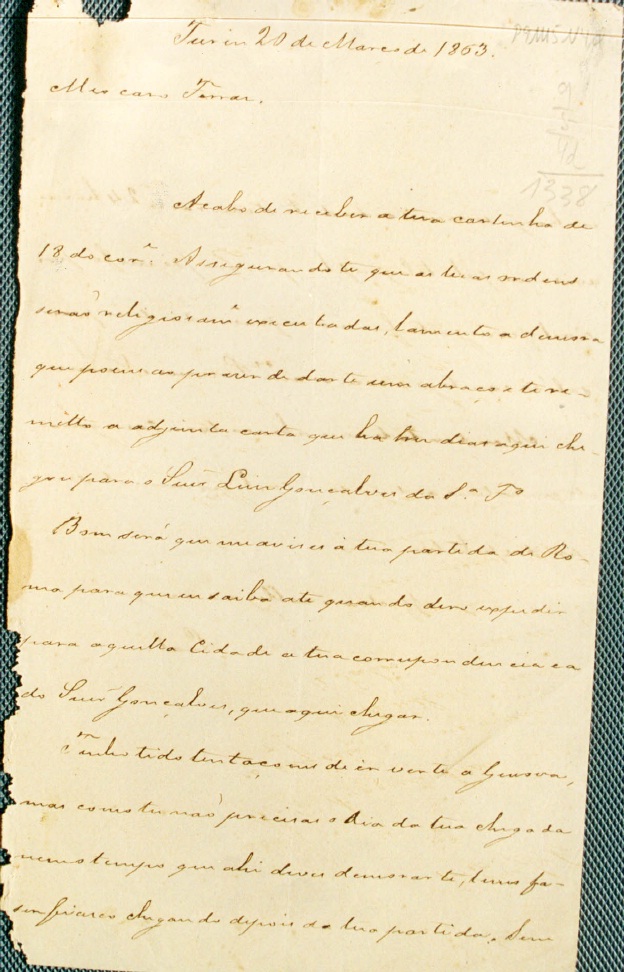 Turin 20 de Março de 1863.
1338
Meo caro Ferraz.
Acabo de receber a tua cartinha de
18 do corr.e Assegurando te que as tuas ordens
serão religiosam.e executadas, lamento a demora
que poem ao prazer de dar te um abraço e te re-
metto a adjunta carta que ha tres dias aqui che-
gou para o Snr̃ Luiz Gonçalves da S.a
Bom será que me avises a tua partida de Ro-
ma para que eu saiba até quando devo expedir
para aquella Cidade a tua correspondencia e a
do Snr̃ Gonçalves, que aqui chegar.
Tenho tido tentaçoens de ir verte a Genova,
mas como tu não precisas o dia da tua chegada
nem o tempo que ahi deves demorarte,
chegando depois da tua partida. Sem